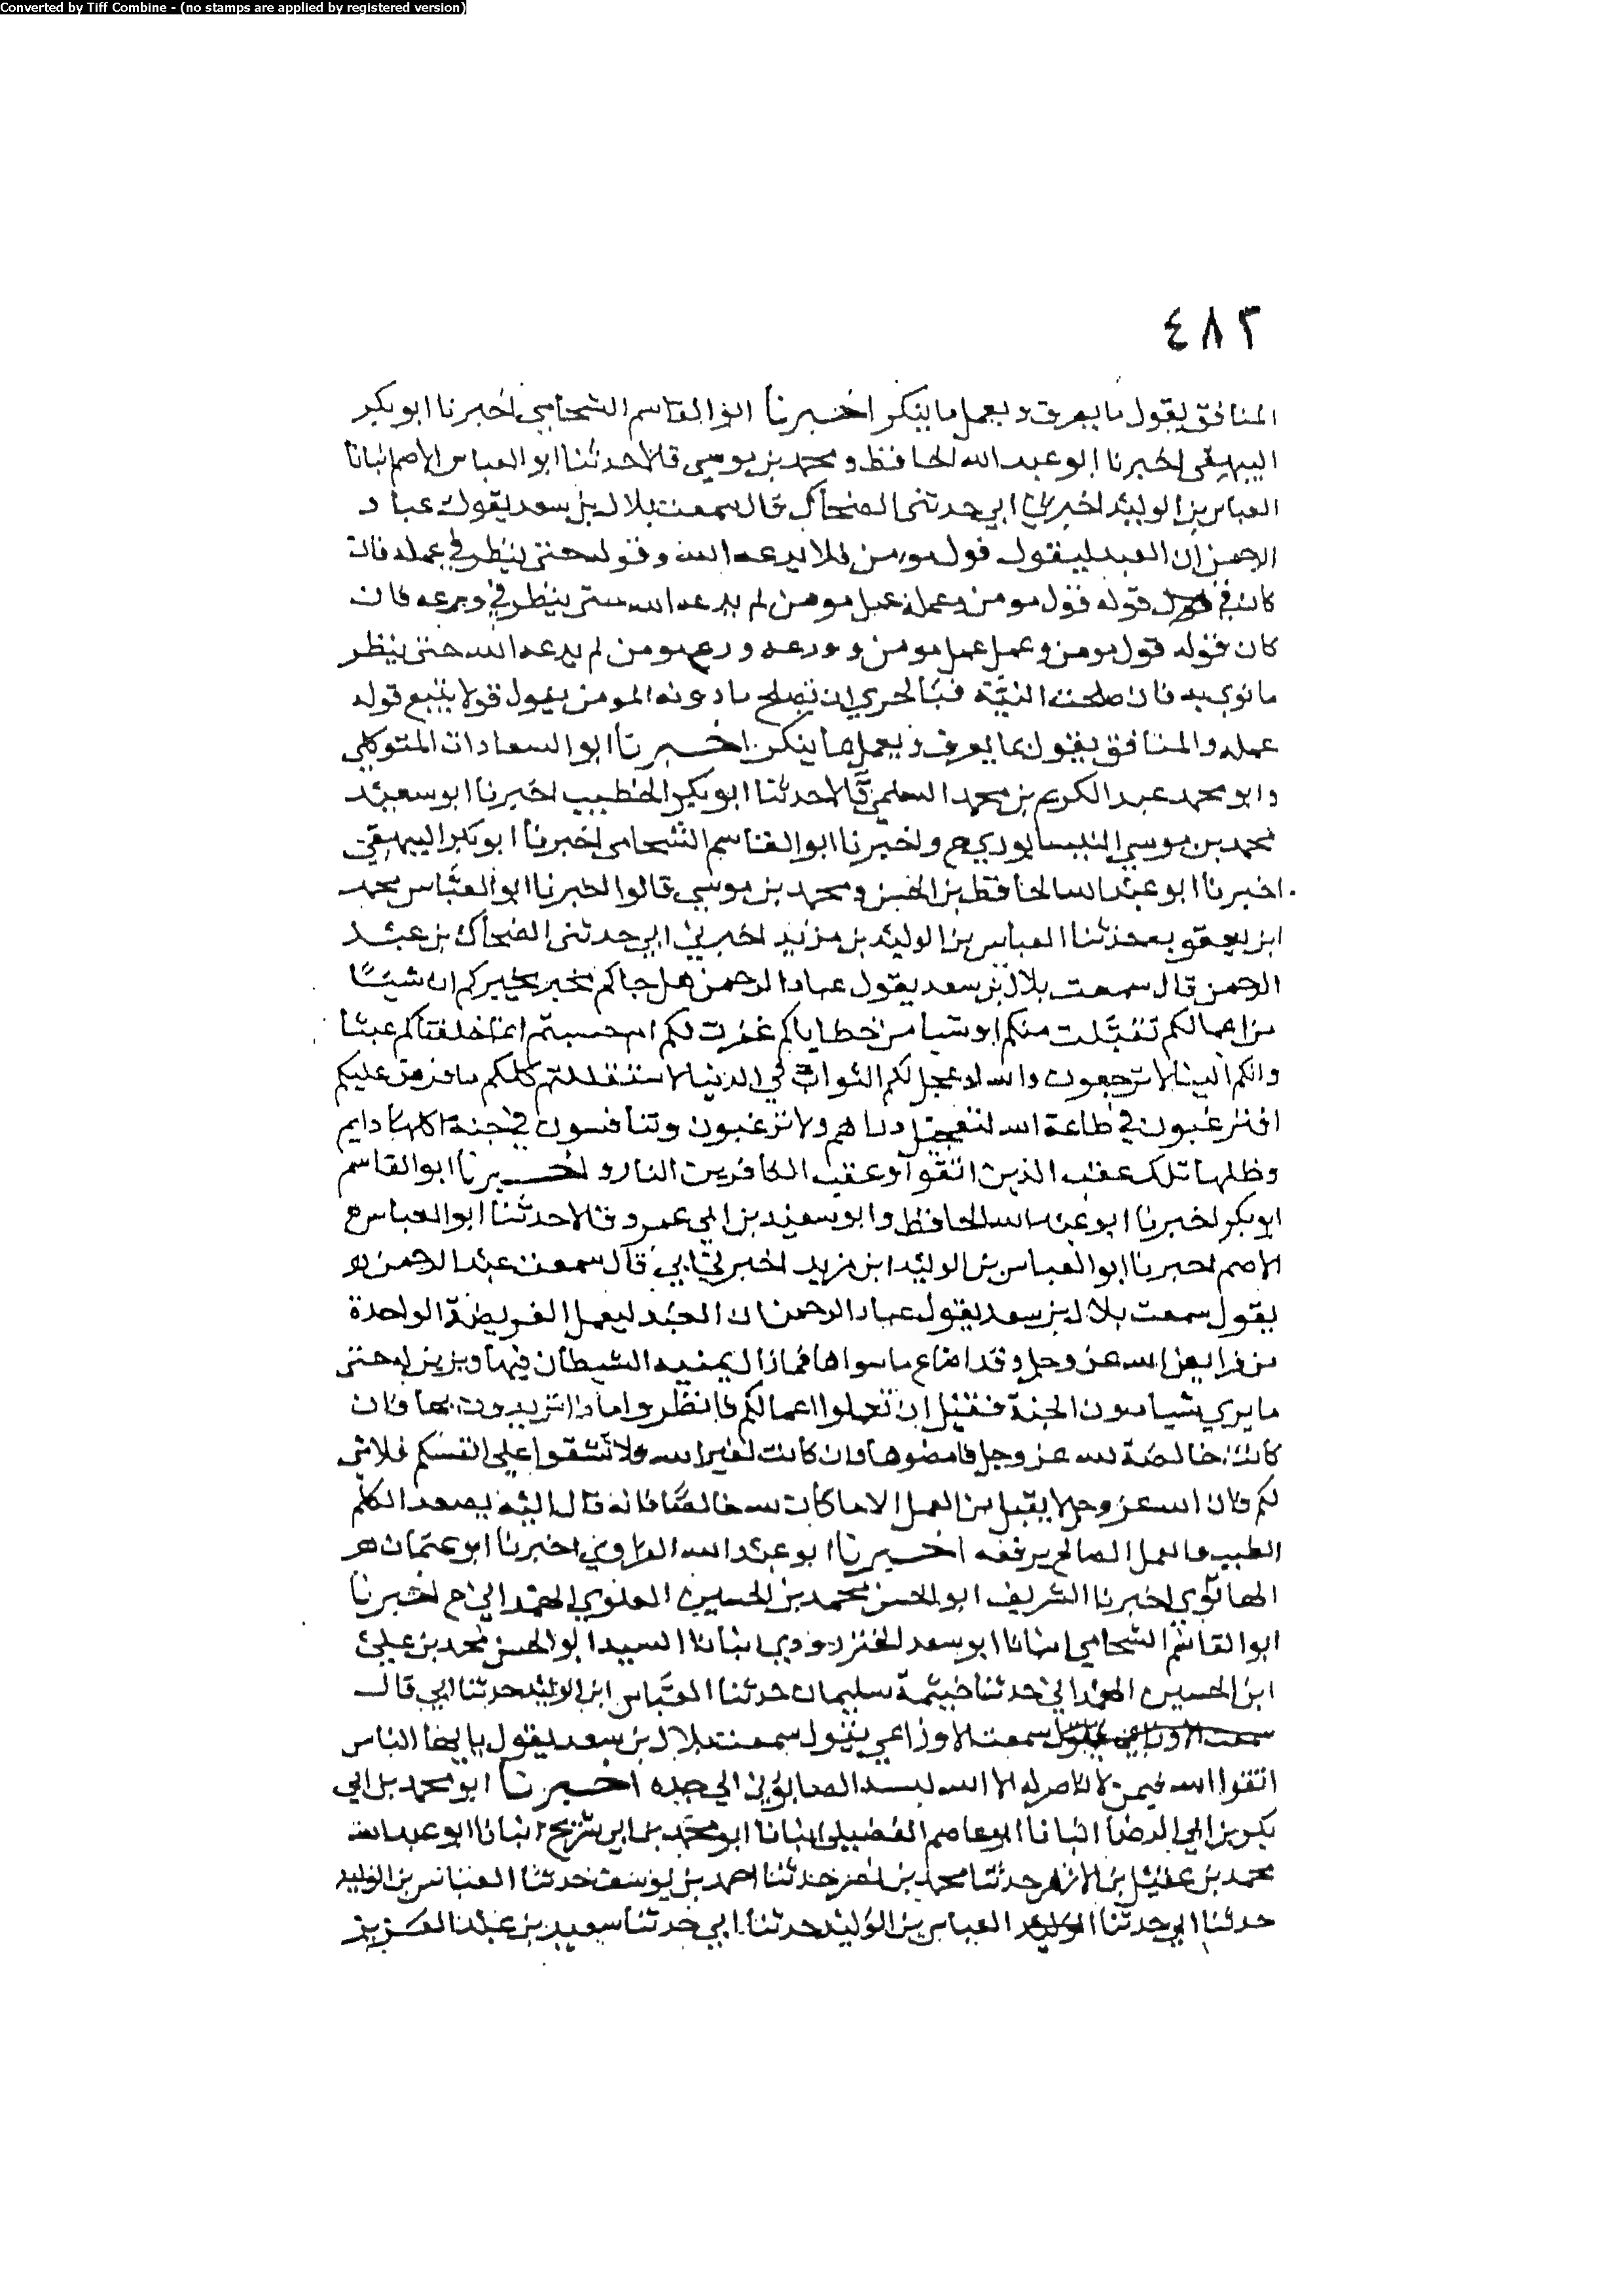 Converted by Tiff Combine - (no stamps are applied by registered version)
٤٨٣
المنافق يقول ما يعرف ويعمل ما ينكر اخبرنا ابو القاسم الشحامي اخبرنا ابو بكر
البيهقي اخبرنا ابو عبد الله الحافظ ومحمد بن موسي قالا حدثنا ابو العباس الاصم انبانا
العباس بن الوليد اخبرني ابي حدثني الضحاك قال سمعت بلال بن سعد يقول عباد
الرحمن ان العبد ليقول قول مومن فلا يدعه الله وقوله حتى ينظر في عمله فان
كان في قوله قول مومن وعمله عمل مومن لم يدعه الله حتى ينظر في ورعه فان
كان قوله قول مومن وعمل عمل مومن وورعه ورع مومن لم يدعه الله حتى ينظر
ما نوي به فان صلحت النية فبالحري ان تصلح ما دونه المومن يقول قولا يتبع قوله
عمله والمنافق يقول بما يعرف ويعمل ما ينكر اخبرنا ابو السعادات المتوكلي
وابو محمد عبد الكريم بن محمد السلمي قالا حدثنا ابو بكر الخطيب اخبرنا ابو سعيد
محمد بن موسي النيسابوري ح واخبرنا ابو القاسم الشحامي اخبرنا ابو بكر البيهقي
اخبرنا ابو عبد الله الحافظ بن الحسن ومحمد بن موسي قالوا اخبرنا ابو العباس محمد
ابن يعقوب حدثنا العباس بن الوليد بن مزيد اخبرني ابي حدثني الضحاك بن عبد
الرحمن قال سمعت بلال بن سعد يقول عباد الرحمن هل جاكم مخبر يخبركم ان شيئا
من اعمالكم تقبلت منكم او شيا من خطاياكم غفرت لكم ام حسبتم انما خلقناكم عبثا
وانكم الينا لا ترجعون والله لو عجل لكم الثواب في الدنيا لاستقللتم كلكم ما فرض عليكم
افترغبون في طاعة الله لتعجيل دراهم ولا ترغبون وتنافسون في جنة اكلها دايم
وظلها تلك عقبى الذين اتقوا وعقبى الكافرين النار واخبرنا ابو القاسم
ابو بكر اخبرنا ابو عبد الله الحافظ وابو سعيد بن ابي عمرو قالا حدثنا ابو العباس
الاصم اخبرنا ابو العباس بن الوليد ابن مزيد اخبرني ابي قال سمعت عبد الرحمن
يقول سمعت بلال بن سعد يقول عباد الرحمن ان العبد ليعمل الفريضة الواحدة
من فرايض الله عز وجل وقد اضاع ما سواها فما زال يمنيه الشيطان فيها ويزين له حتى
ما يري شيا دون الجنة فقبل ان تعملوا اعمالكم فانظروا ماذا تريدون بها فان
كانت خالصة لله عز وجل فامضوها وان كانت لغير الله فلا تشقوا علي انفسكم فلا شي
لكم فان الله عز وجل لا يقبل من العمل الا ما كان له خالصا فانه قال اليه يصعد الكلم
الطيب والعمل الصالح يرفعه اخبرنا ابو عبد الله الفراوي اخبرنا ابو عثمان
اخبرنا الشريف ابو الحسن محمد بن الحسين العلوي الهمداني ح اخبرنا
ابو القاسم الشحامي انبانا ابو سعد الخنزرودي انبانا السيد ابو الحسن محمد بن علي
ابن الحسين الهمداني حدثنا خيثمة سليمان حدثنا العباس ابن الوليد حدثنا ابي قال
سمعت الاوزاعي يقول سمعت بلال بن سعد يقول يا ايها الناس
اتقوا الله فيمن لا ناصر له الا الله الصابوني الي جده اخبرنا ابو محمد بن ابي
بكر بن ابي الرضا انبانا ابو عاصم الفضيلي انبانا ابو محمد بن ابي شريح انبانا ابو عبد الله
محمد بن عقيل بن الازهر حدثنا محمد بن نصر حدثنا احمد بن يوسف حدثنا العباس بن الوليد
حدثنا ابي حدثنا العباس بن الوليد حدثنا ابي حدثنا سعيد بن عبد العزيز